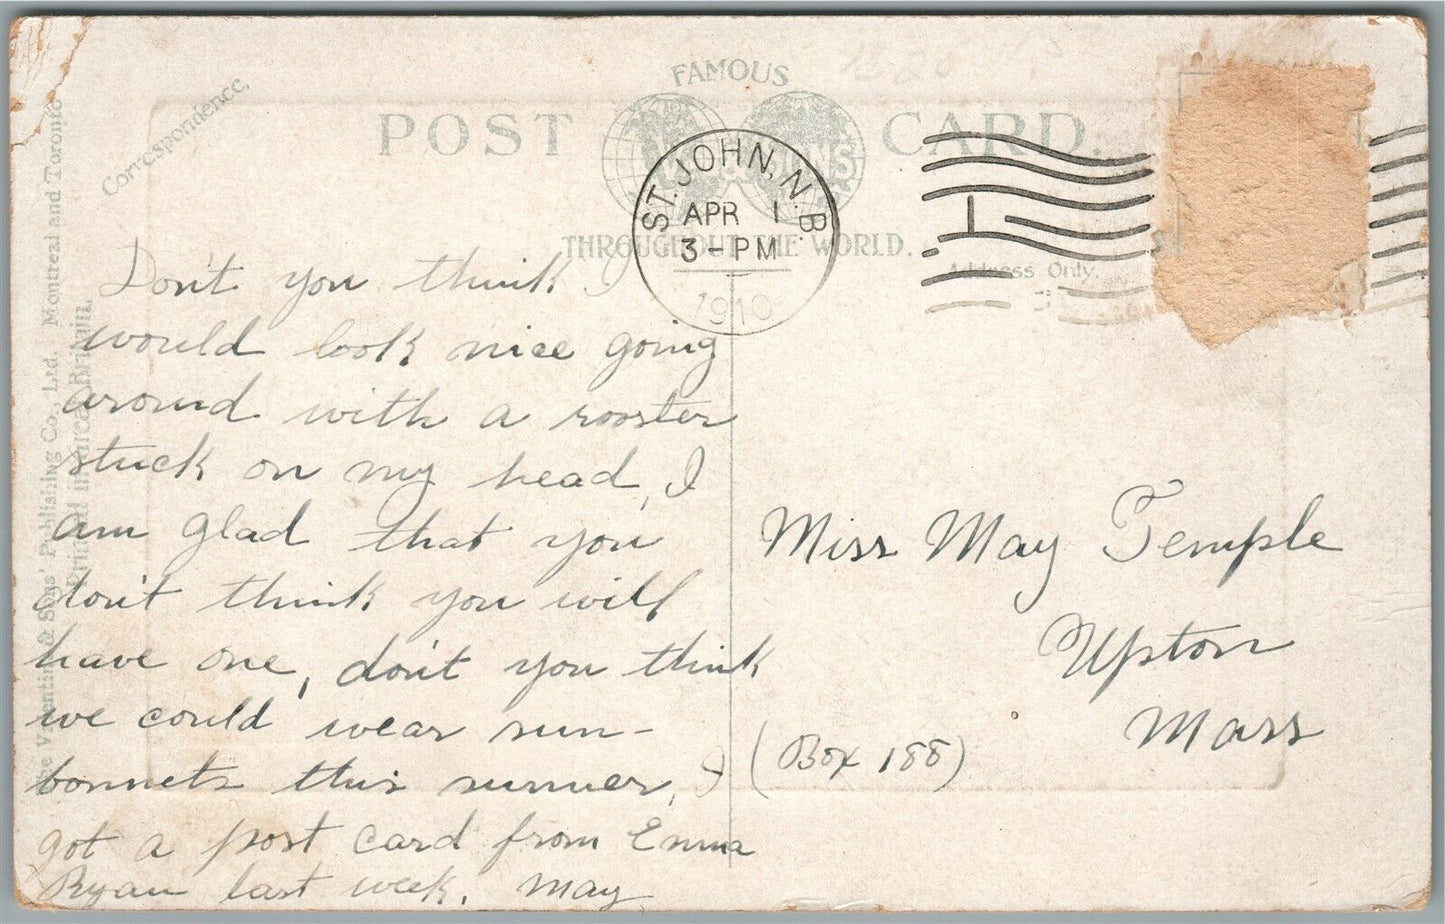 FAMOUS
POST CARD.
THROUGHOUT THE WORLD.
Correspondence.
Address Only.
The Valentine & Sons' Publishing Co., Ltd. Montreal and Toronto
Printed in Great Britain.
ST. JOHN, N.B.
APR 1
3-PM
1910
Don't you think I
would look nice going
around with a rooster
stuck on my head, I
am glad that you
don't think you will
have one, don't you think
we could wear sun-
bonnets this summer, I
got a post card from Emma
Ryan last week. May
Miss May Temple
Upton
Mass
(Box 188)